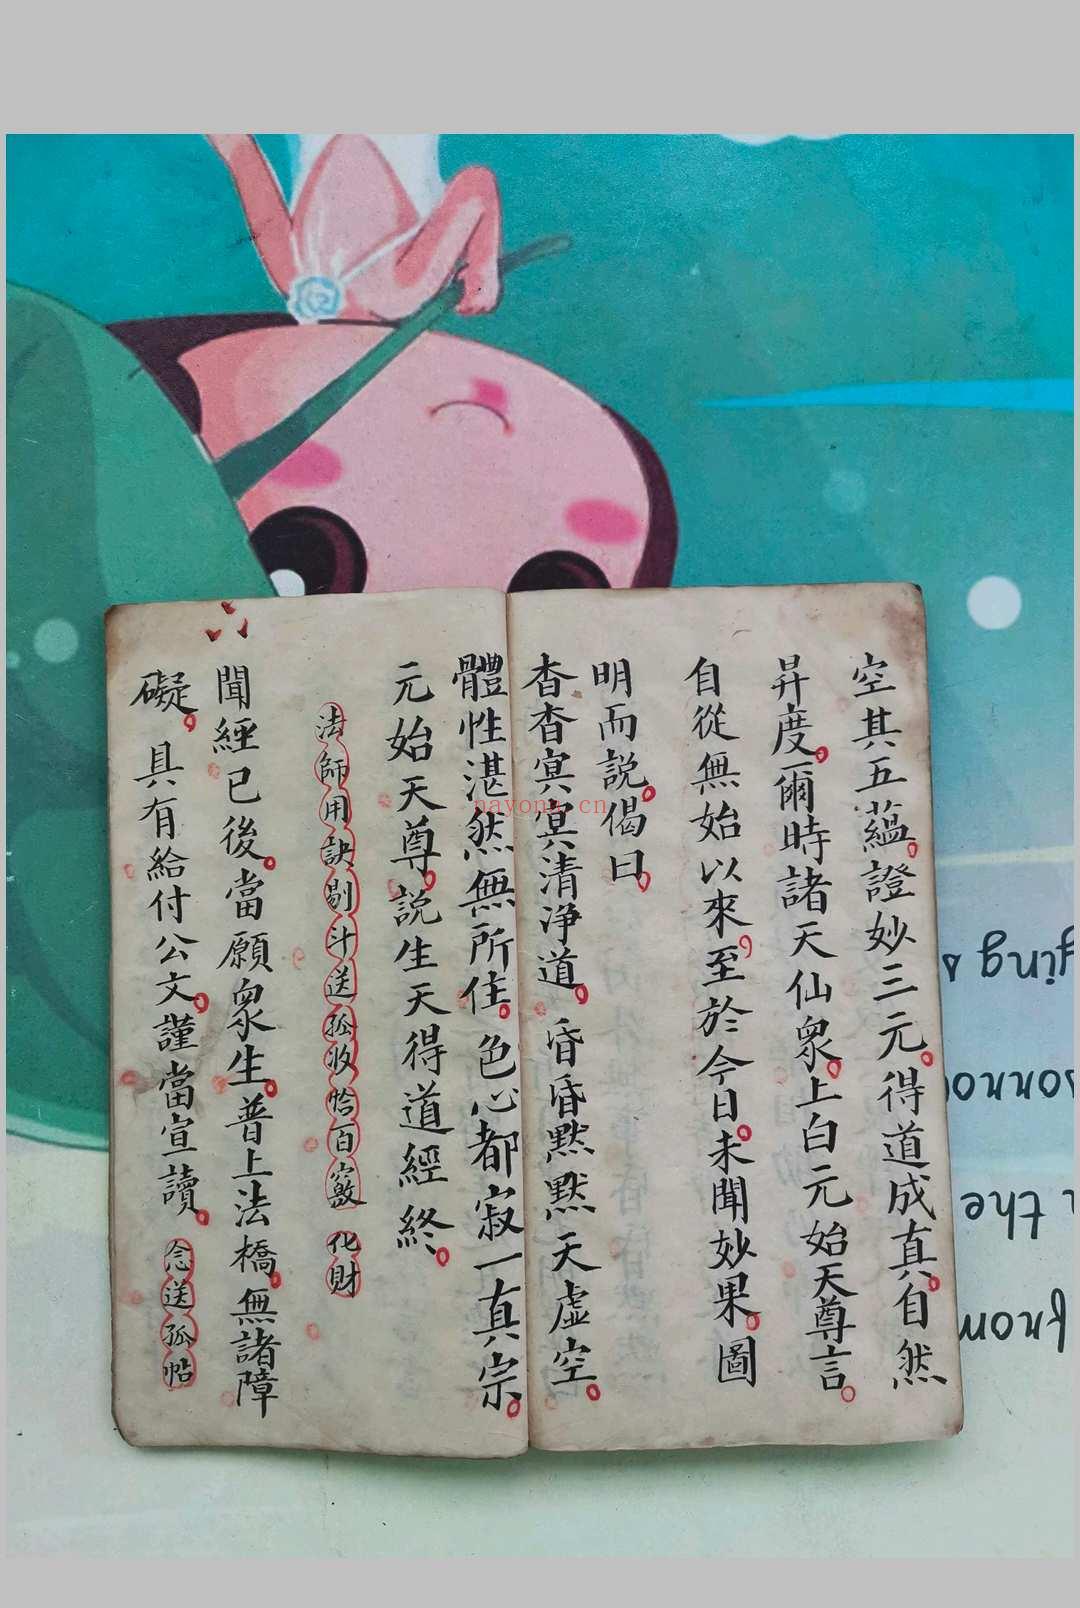 空其五蘊證妙三元得道成真自然
昇度爾時諸天仙衆上白元始天尊言
自從無始以來至於今日未聞妙果啚
明而説偈曰
杳杳冥冥清淨道昏昏默默天虚空
體性湛然無所住色心都寂一真宗
元始天尊説生天得道經終
法師用訣剔斗送孤收恰百竅 化財
聞經已後當願衆生普上法橋無諸障
礙 具有給付公文謹當宣讀 念送孤帖
nayona.cn
ging
the
from